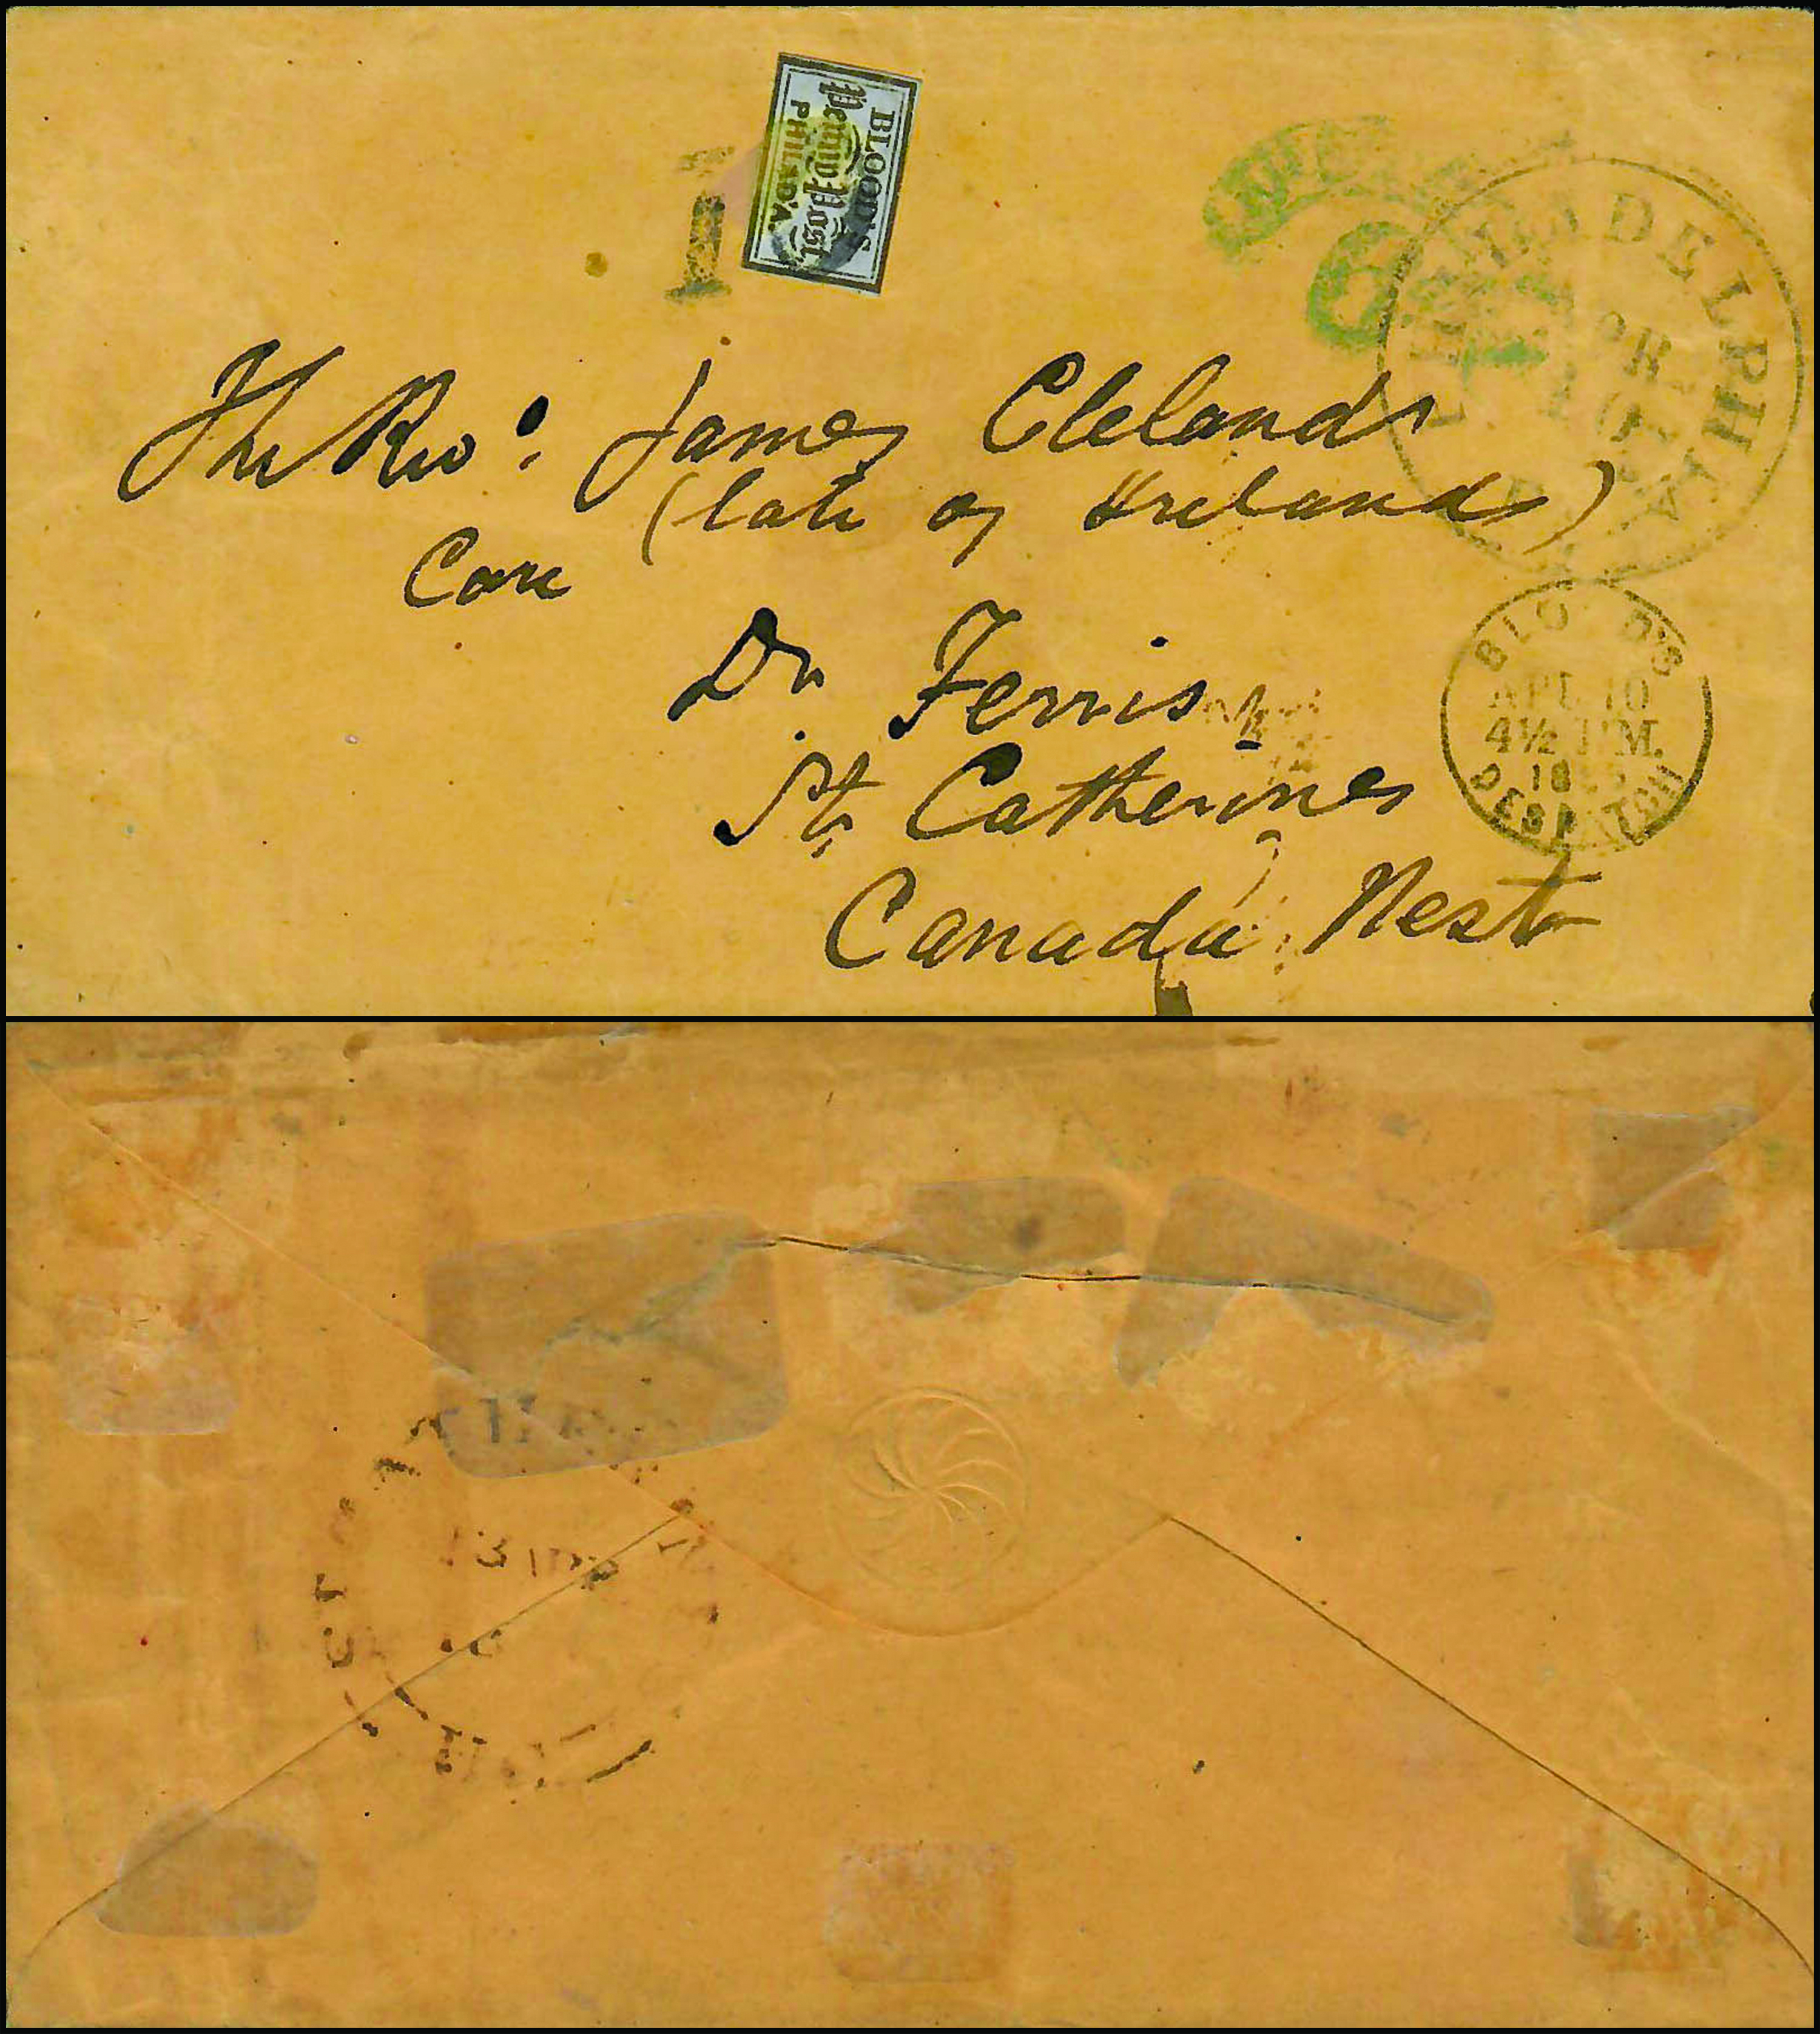 BLOOD'S
Penny Post
PHILAD'A.
1
6
PHILADELPHIA
APR
10
The Rev: James Cleland
(late of Ireland)
Care
Dr Ferris
St. Catherines
Canada West
BLOOD'S
APL 10
4½ P.M.
DESPATCH